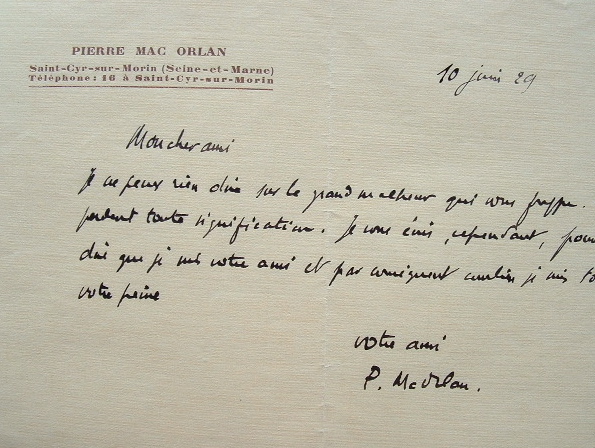 PIERRE MAC ORLAN
Saint-Cyr-sur-Morin (Seine-et-Marne)
Téléphone: 16 à Saint-Cyr-sur-Morin
10 juin 29
Mon cher ami
Je ne peux rien dire sur le grand malheur qui vous frappe.
perdent toute signification. Je vous écris, cependant, pour
dire que je suis votre ami et par conséquent combien je suis
votre peine
votre ami
P. Mac Orlan.